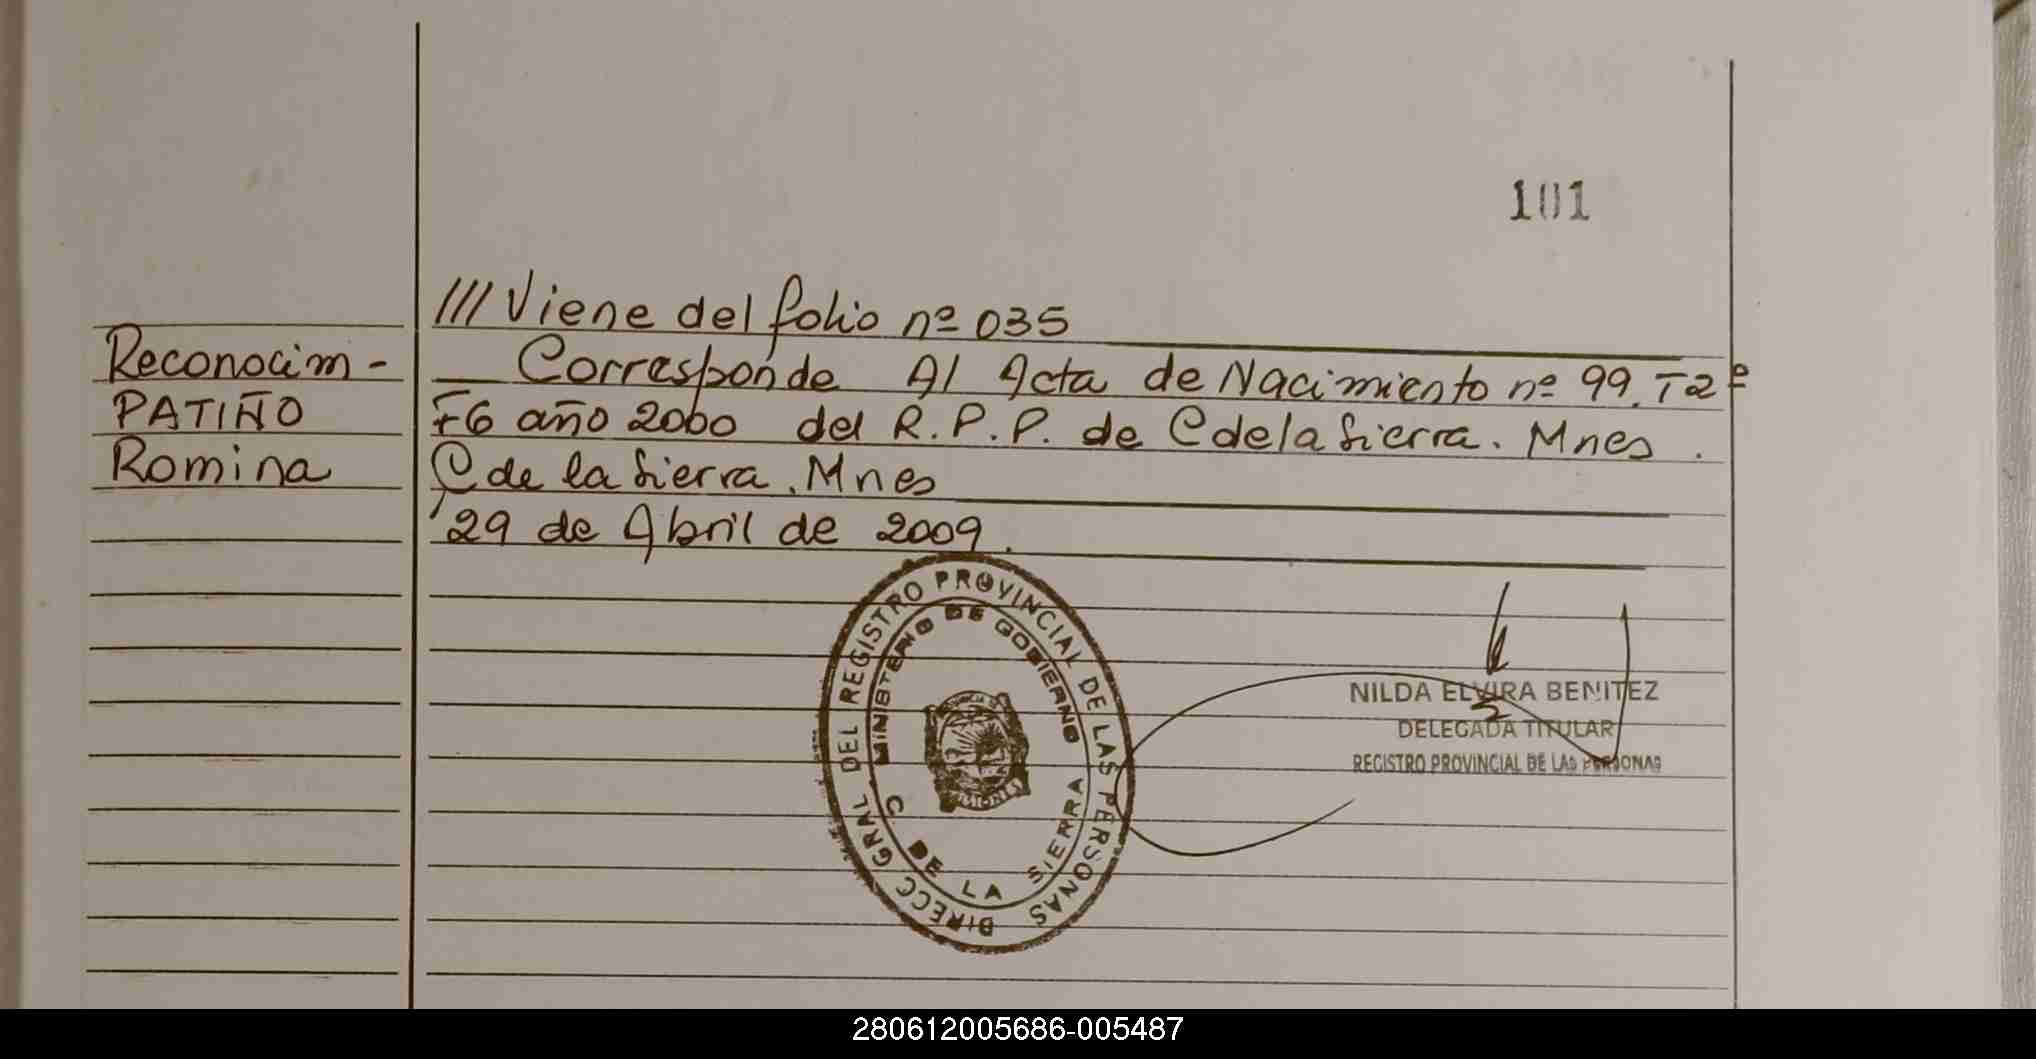 101
/// Viene del folio nº 035
Reconocim-
Corresponde Al Acta de Nacimiento nº 99. T2º
PATIÑO
F6 año 2000 del R.P.P. de C de la Sierra. Mnes.
Romina
C de la Sierra. Mnes
29 de Abril de 2009.
DIRECC GRAL DEL REGISTRO PROVINCIAL DE LAS PERSONAS
MINISTERIO DE GOBIERNO
C DE LA SIERRA
MISIONES
NILDA ELVIRA BENITEZ
DELEGADA TITULAR
REGISTRO PROVINCIAL DE LAS PERSONAS
280612005686-005487